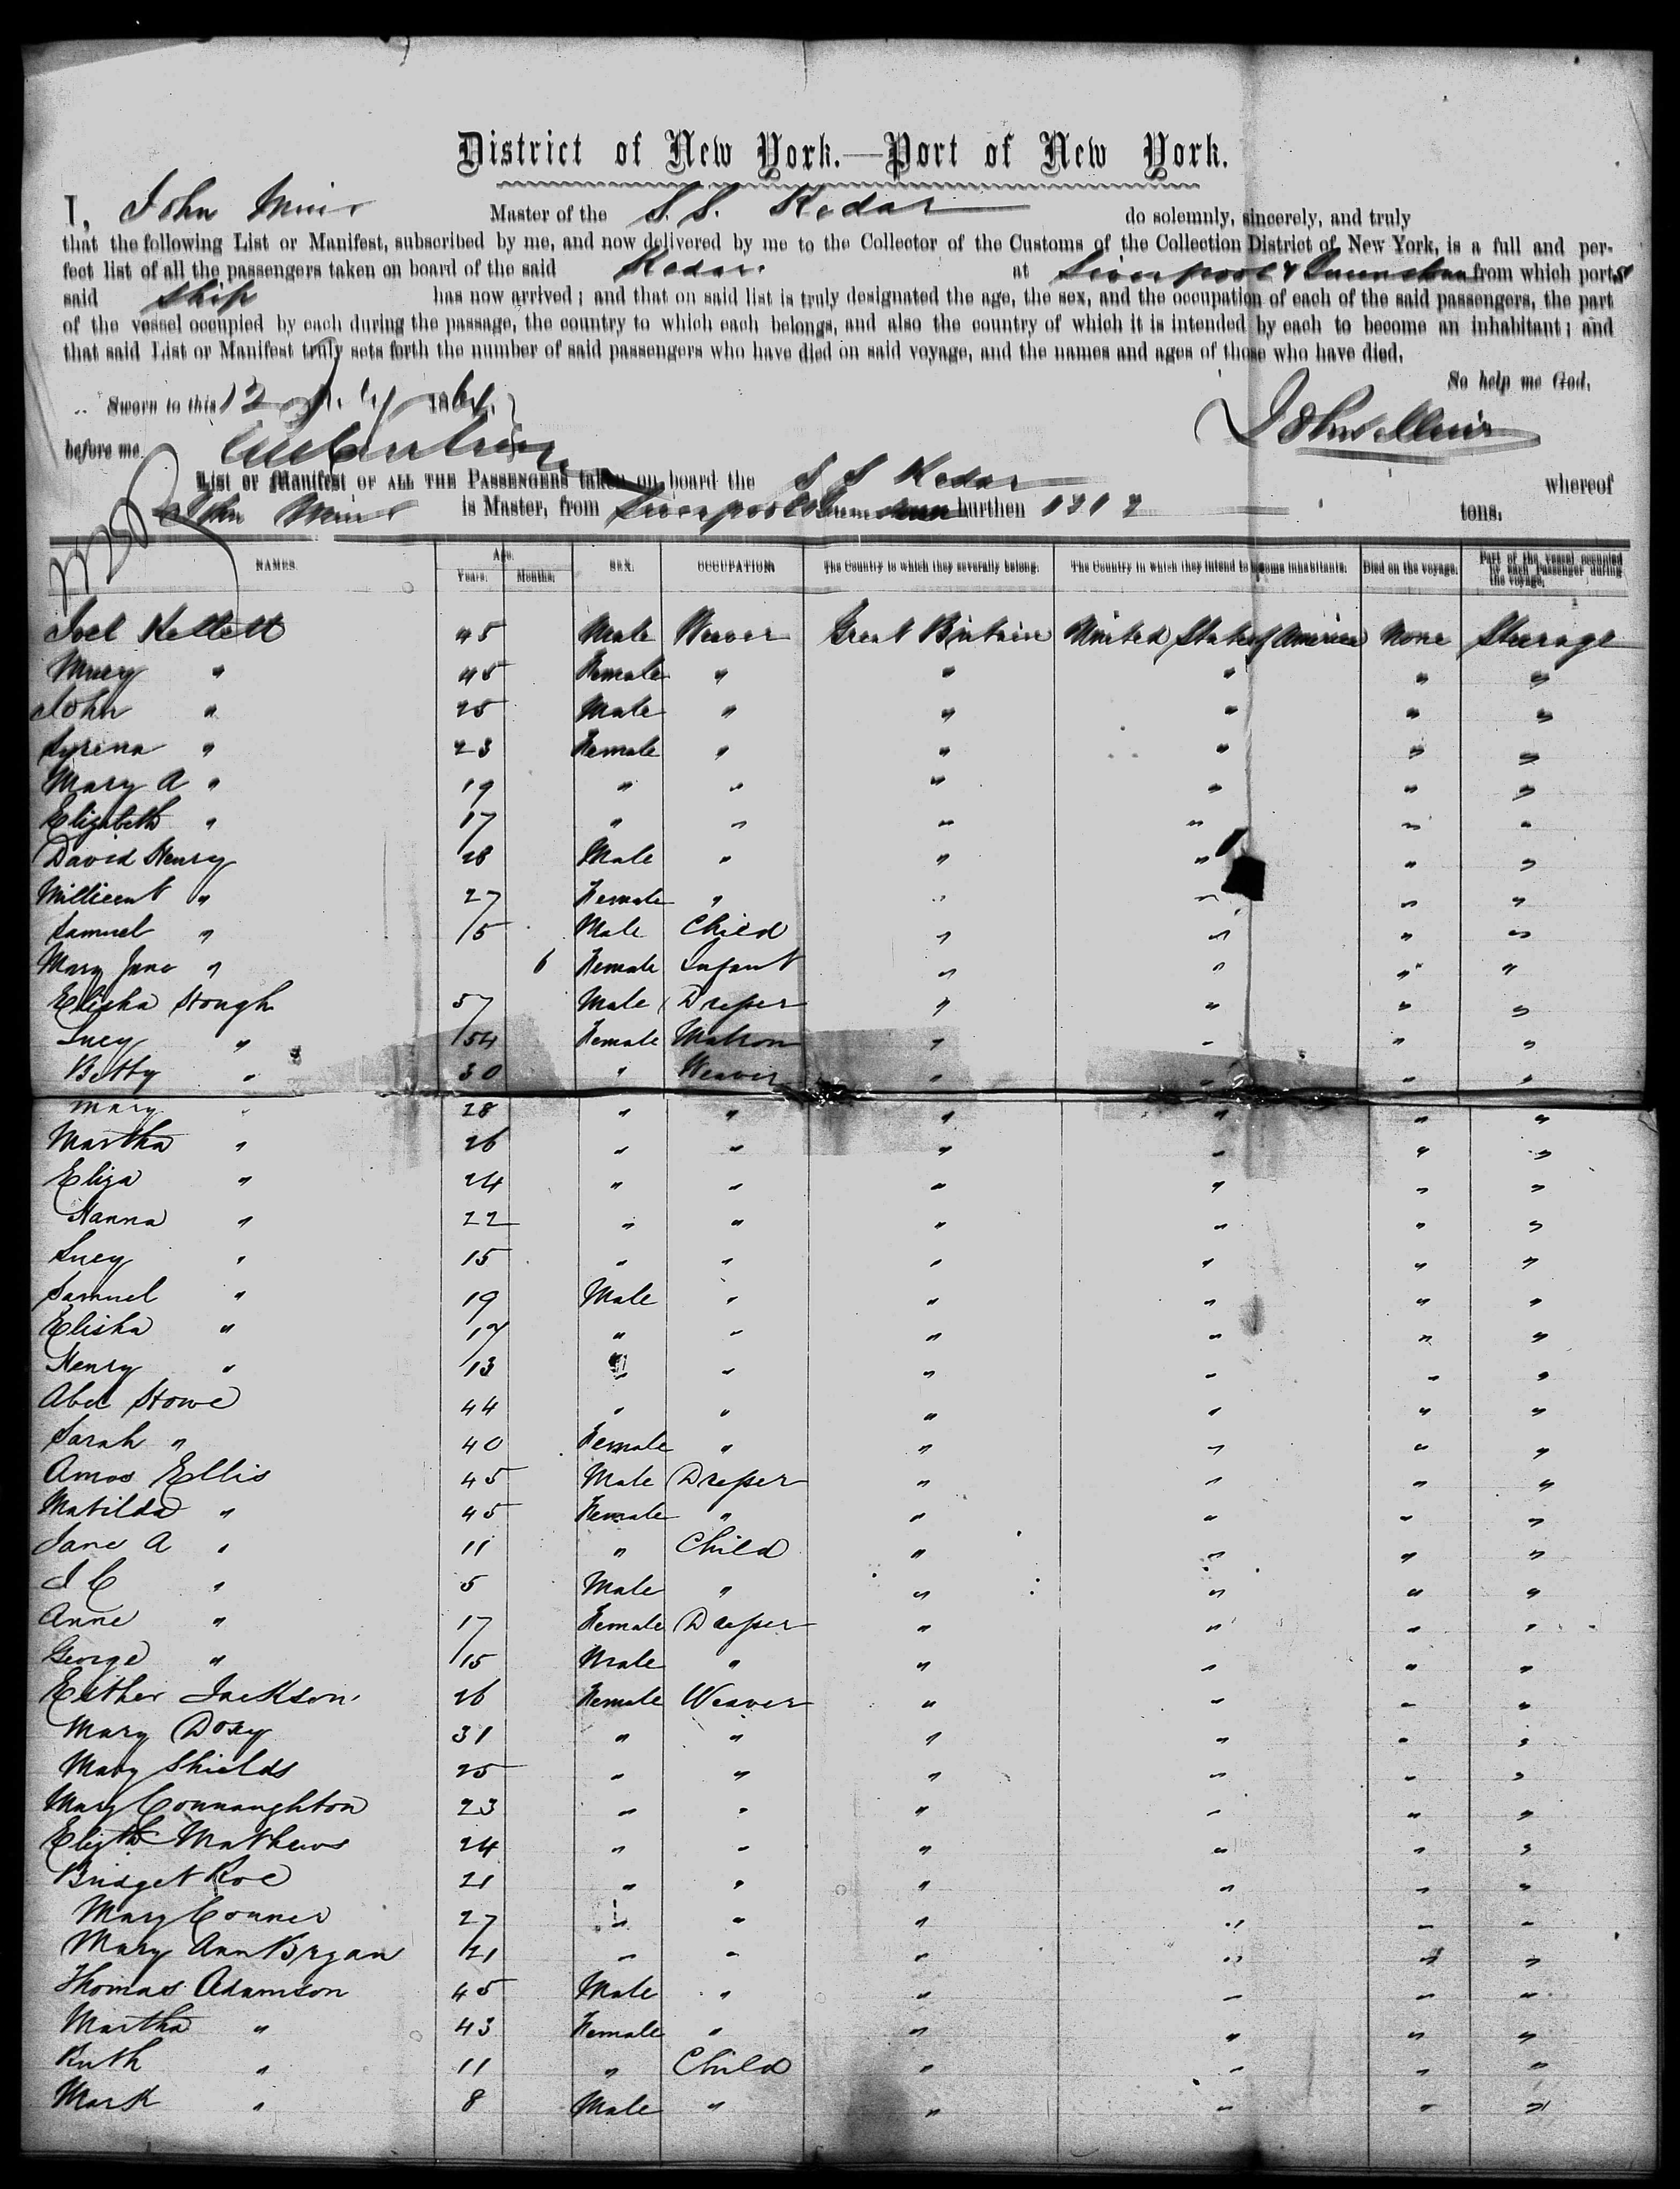 District of New York.—Port of New York.
I, John Muir Master of the S. S. Kedar do solemnly, sincerely, and truly
that the following List or Manifest, subscribed by me, and now delivered by me to the Collector of the Customs of the Collection District of New York, is a full and per-
fect list of all the passengers taken on board of the said Kedar. at Liverpool & Queenstown from which ports
said Ship has now arrived; and that on said list is truly designated the age, the sex, and the occupation of each of the said passengers, the part
of the vessel occupied by each during the passage, the country to which each belongs, and also the country of which it is intended by each to become an inhabitant; and
that said List or Manifest truly sets forth the number of said passengers who have died on said voyage, and the names and ages of those who have died.
So help me God.
Sworn to this 12 1864
John Muir
before me
List or Manifest OF ALL THE PASSENGERS taken on board the S S Kedar whereof
John Muir is Master, from Liverpool & Queenstown burthen tons.
NAMES. Age. Years. Months. SEX. OCCUPATION. The Country to which they severally belong. The Country in which they intend to become inhabitants. Died on the voyage. Part of the vessel occupied by each Passenger during the voyage.
Joel Kellett 45 Male Weaver Great Britain United States of America None Steerage
Mary " 45 Female " " " " "
John " 25 Male " " " " "
Syrena " 23 Female " " " " "
Mary A " 19 " " " " " "
Elizabeth " 17 " " " " " "
David Henry 28 Male " " " " "
Millicent " 27 Female " " " " "
Samuel " 5 Male Child " " " "
Mary Jane " 6 Female Infant " " " "
Elisha Hough 57 Male Draper " " " "
Lucy " 54 Female Matron " " " "
Betty " 30 " Weaver " " " "
Mary " 28 " " " " " "
Martha " 26 " " " " " "
Eliza " 24 " " " " " "
Hanna " 22 " " " " " "
Lucy " 15 " " " " " "
Samuel " 19 Male " " " " "
Elisha " 17 " " " " " "
Henry " 13 " " " " " "
Abel Howe 44 " " " " " "
Sarah " 40 Female " " " " "
Amos Ellis 45 Male Draper " " " "
Matilda " 45 Female " " " " "
Jane A " 11 " Child " " " "
J C " 5 Male " " " " "
Anne " 17 Female Draper " " " "
George " 15 Male " " " " "
Esther Jackson 26 Female Weaver " " " "
Mary Doxy 31 " " " " " "
Mary Shields 25 " " " " " "
Mary Connaughton 23 " " " " " "
Elizth Mathews 24 " " " " " "
Bridget Roe 21 " " " " " "
Mary Conner 27 " " " " " "
Mary Ann Bryan 21 " " " " " "
Thomas Adamson 45 Male " " " " "
Martha " 43 Female " " " " "
Ruth " 11 " Child " " " "
Mark " 8 Male " " " " "